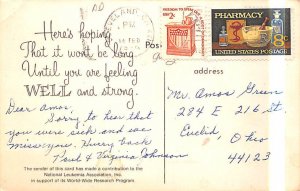 Here's hoping
That it won't be long
Until you are feeling
WELL and strong.
Dear Amos,
Sorry to hear that
you were sick and we
miss you. Hurry back
Paul & Virginia Johnson
The sender of this card has made a contribution to the
National Leukemia Association, Inc.
in support of its World-Wide Research Program
PM
FEB
FREEDOM TO SPEAK OUT
2c
PHARMACY
8c
UNITED STATES POSTAGE
Pos
address
Mr. Amos Green
284 E 216 St
Euclid, Ohio
44123